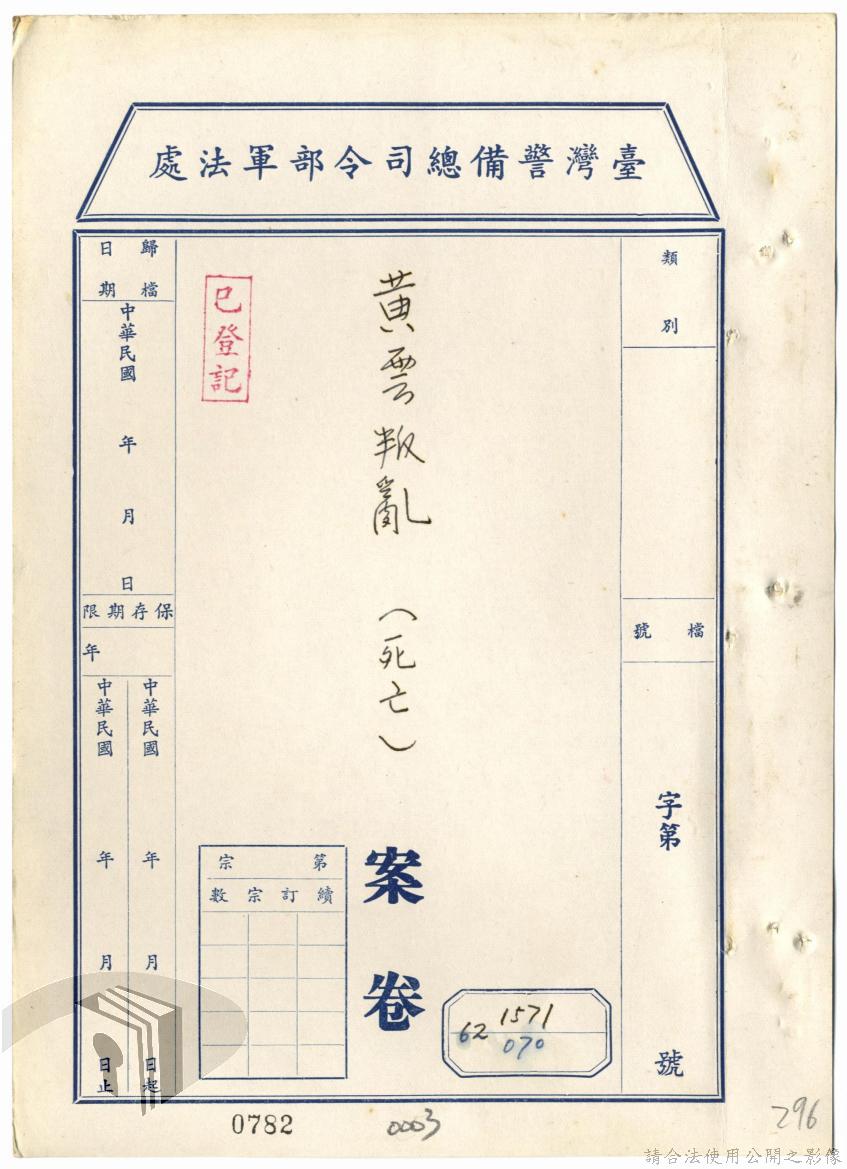 臺灣警備總司令部軍法處
類別
檔號
字第 號
黃雲叛亂(死亡)
案卷
1571
62 070
已登記
第 宗
續訂宗數
歸檔日期
中華民國 年 月 日
保存期限
年
中華民國 年 月 日起
中華民國 年 月 日止
0782
0003
296
請合法使用公開之影像